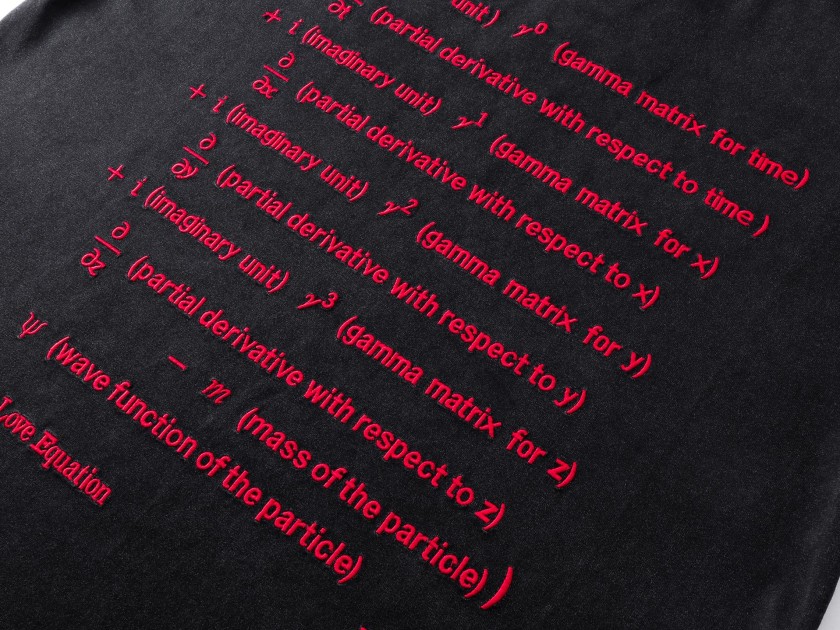 unit) γ⁰ (gamma matrix for time)
∂/∂t (partial derivative with respect to time )
+ i (imaginary unit) γ¹ (gamma matrix for x)
∂/∂x (partial derivative with respect to x)
+ i (imaginary unit) γ² (gamma matrix for y)
∂/∂y (partial derivative with respect to y)
+ i (imaginary unit) γ³ (gamma matrix for z)
∂/∂z (partial derivative with respect to z)
− m (mass of the particle))
ψ (wave function of the particle)
Love Equation